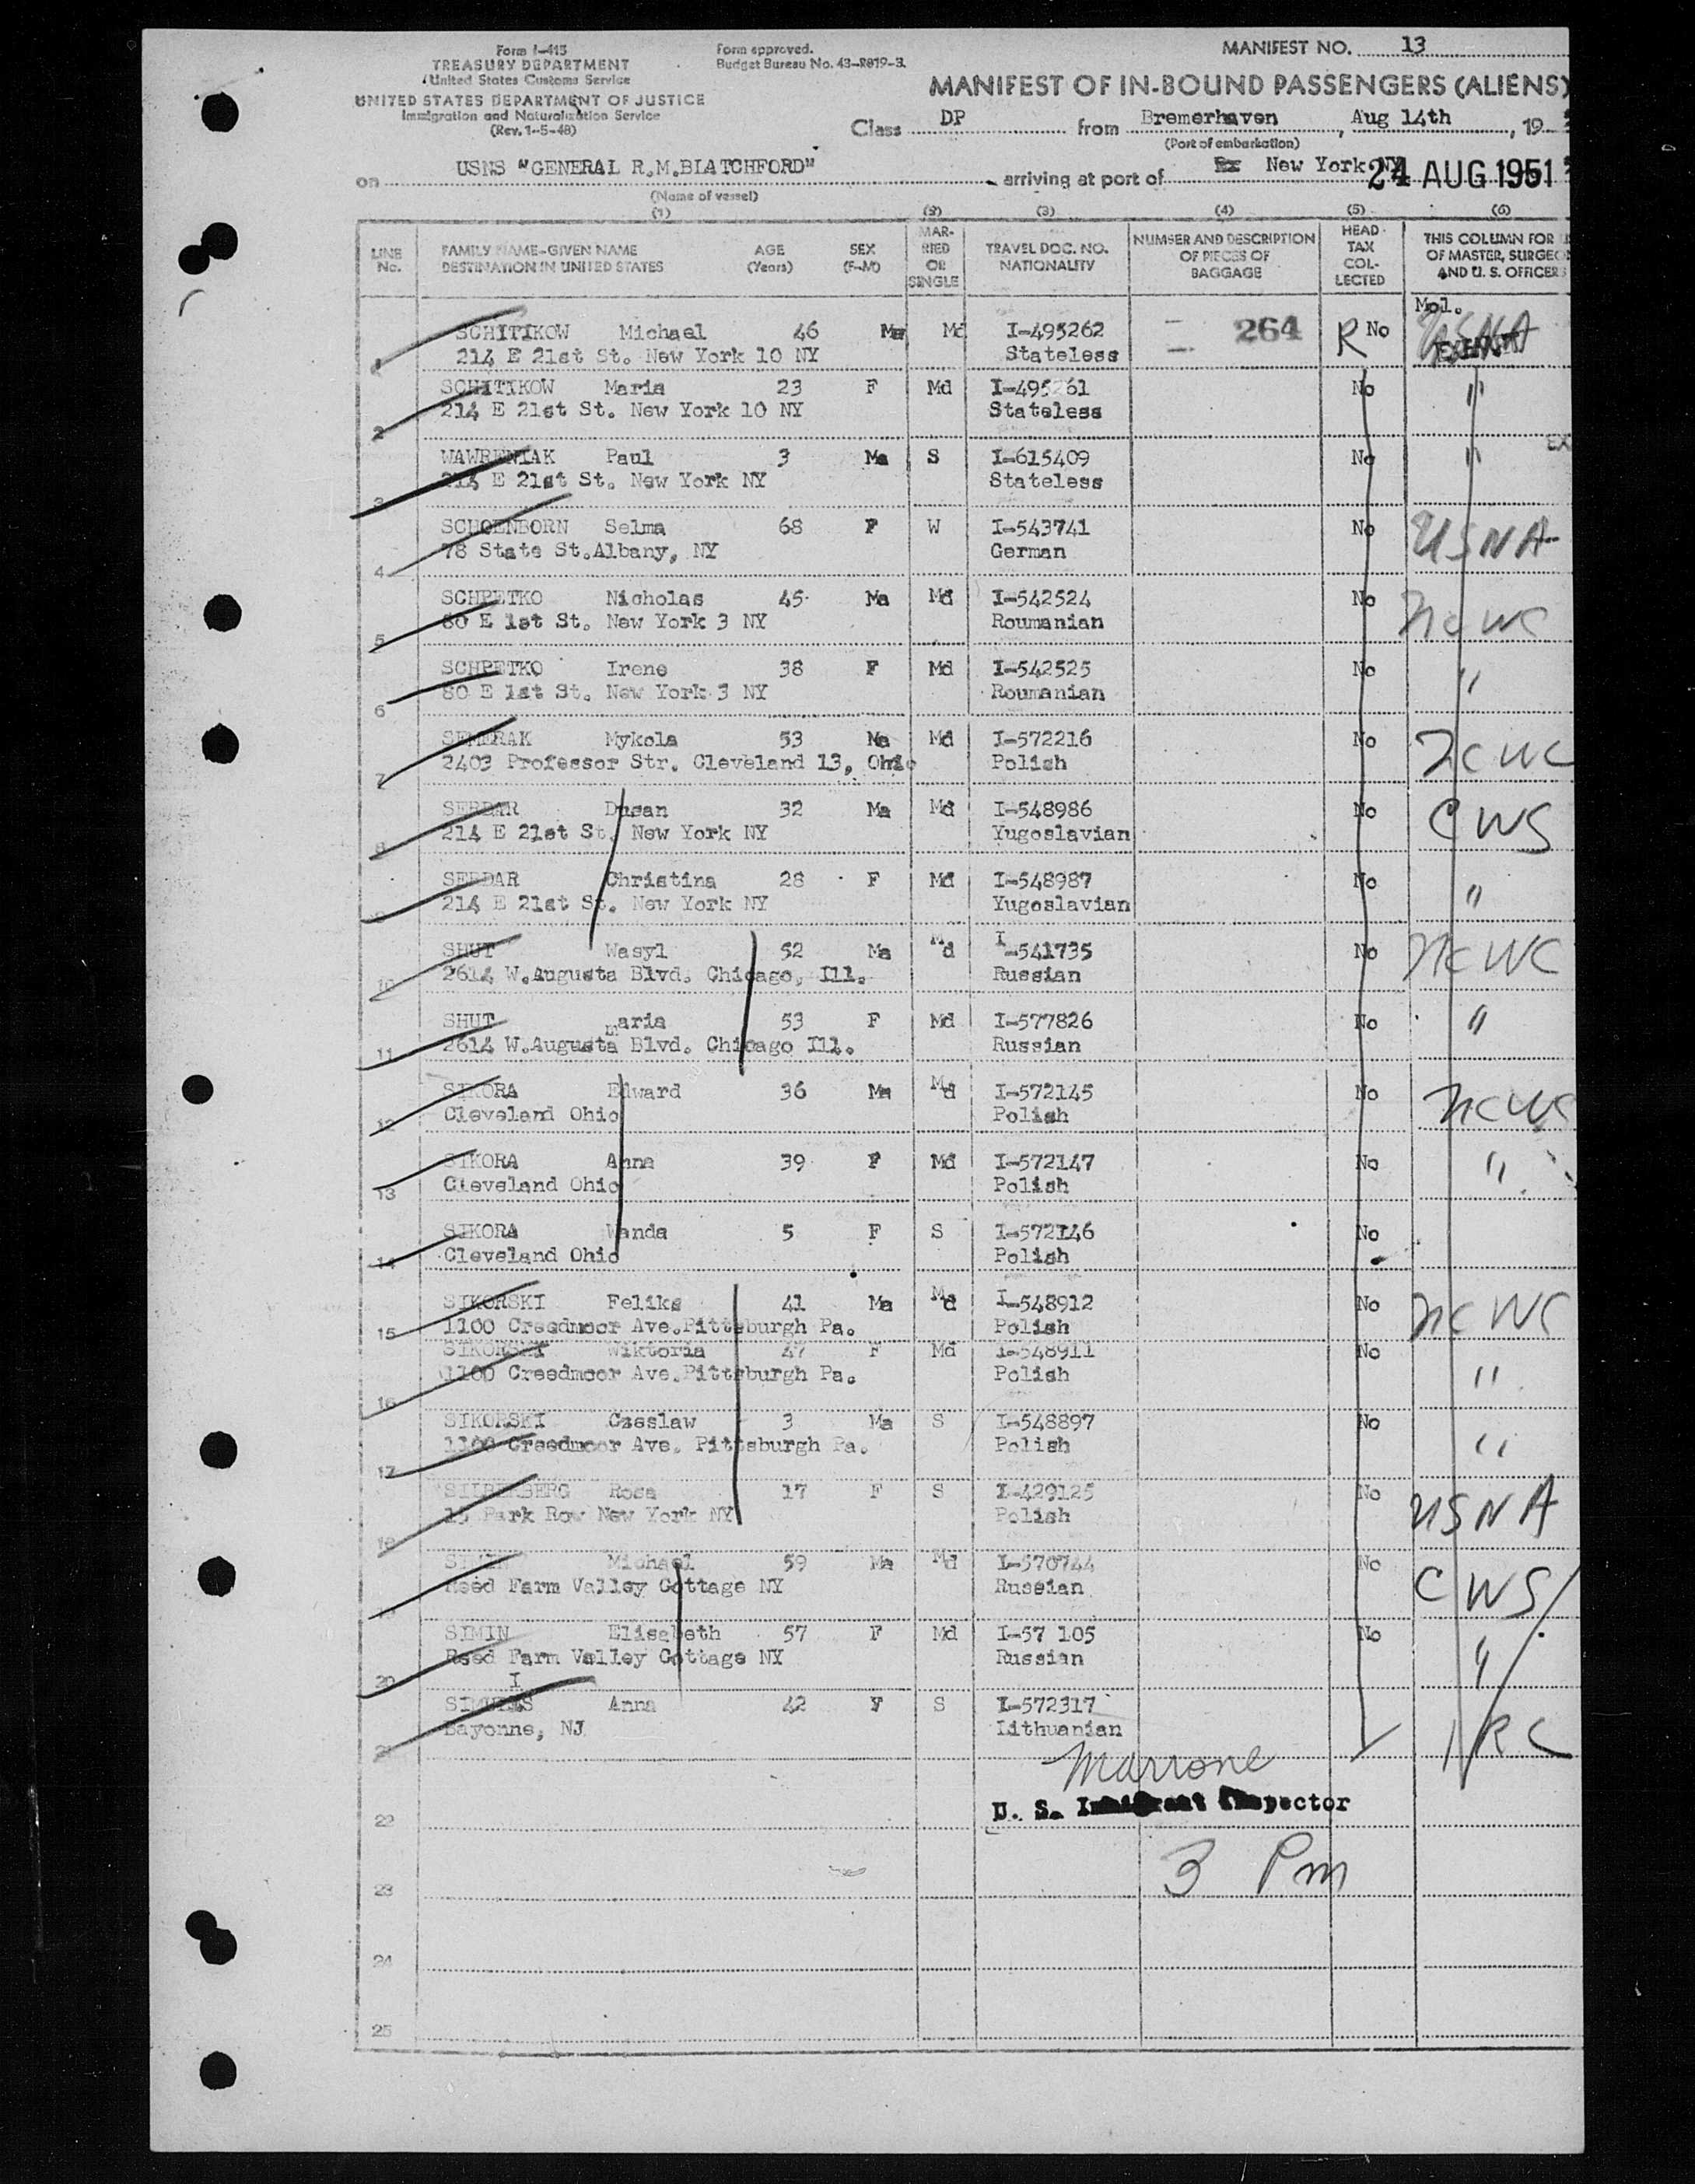 Form I-415
TREASURY DEPARTMENT
United States Customs Service
UNITED STATES DEPARTMENT OF JUSTICE
Immigration and Naturalization Service
(Rev. 1-5-48)
Form approved.
Budget Bureau No. 43-R019-3.
MANIFEST NO. 13
MANIFEST OF IN-BOUND PASSENGERS (ALIENS)
Class DP from Bremerhaven, Aug 14th, 19
(Port of embarkation)
on USNS "GENERAL R.M.BLATCHFORD" arriving at port of New York NY 24 AUG 1951
(Name of vessel)
(1) (2) (3) (4) (5) (6)
LINE No. FAMILY NAME-GIVEN NAME DESTINATION IN UNITED STATES AGE (Years) SEX (F-M) MARRIED OR SINGLE TRAVEL DOC. NO. NATIONALITY NUMBER AND DESCRIPTION OF PIECES OF BAGGAGE HEAD TAX COLLECTED THIS COLUMN FOR OF MASTER, SURGEON AND U. S. OFFICERS
Mol.
SCHITIKOW Michael 46 Ma Md I-495262 264 R No USNA
1 214 E 21st St. New York 10 NY Stateless
SCHITIKOW Maria 23 F Md I-495 61 No "
2 214 E 21st St. New York 10 NY Stateless
EX
WAWRENIAK Paul 3 Ma S I-615409 No "
3 214 E 21st St. New York NY Stateless
SCHOENBORN Selma 68 F W I-543741 No USNA
4 78 State St.Albany, NY German
SCHPETKO Nicholas 45 Ma Md I-542524 No NCWC
5 80 E 1st St. New York 3 NY Roumanian
SCHPETKO Irene 38 F Md I-542525 No "
6 80 E 1st St. New York 3 NY Roumanian
SEMERAK Mykola 53 Ma Md I-572216 No NCWC
7 2403 Professor Str. Cleveland 13, Ohio Polish
SERDAR Dusan 32 Ma Md I-548986 No CWS
8 214 E 21st St. New York NY Yugoslavian
SERDAR Christina 28 F Md I-548987 No "
9 214 E 21st St. New York NY Yugoslavian
SHUT Wasyl 52 Ma Md I-541735 No NCWC
10 2614 W.Augusta Blvd. Chicago, Ill. Russian
SHUT maria 53 F Md I-577826 No "
11 2614 W.Augusta Blvd. Chicago Ill. Russian
SIKORA Edward 36 Ma Md I-572145 No NCWC
12 Cleveland Ohio Polish
SIKORA Anna 39 F Md I-572147 No "
13 Cleveland Ohio Polish
SIKORA Wanda 5 F S I-572146 No
14 Cleveland Ohio Polish
SIKORSKI Feliks 41 Ma Md I-548912 No NCWC
15 1100 Creedmoor Ave.Pittsburgh Pa. Polish
SIKORSKI Wiktoria 47 F Md I-548911 No "
16 1100 Creedmoor Ave.Pittsburgh Pa. Polish
SIKORSKI Czeslaw 3 Ma S I-548897 No "
17 1100 Creedmoor Ave. Pittsburgh Pa. Polish
SILBERBERG Rosa 17 F S I-429125 No USNA
18 15 Park Row New York NY Polish
SIMIN Michael 59 Ma Md I-570744 No CWS
19 Reed Farm Valley Cottage NY Russian
SIMIN Elisabeth 57 F Md I-57 105 No "
20 Reed Farm Valley Cottage NY Russian
I
Anna 42 F S I-572317 IRC
21 Bayonne, NJ Lithuanian
Marrone
22 U. S. Immigrant Inspector
23 3 Pm
24
25